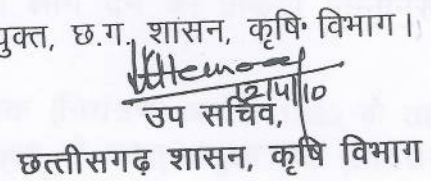 युक्त, छ.ग. शासन, कृषि विभाग।
12/4/10
उप सचिव,
छत्तीसगढ़ शासन, कृषि विभाग